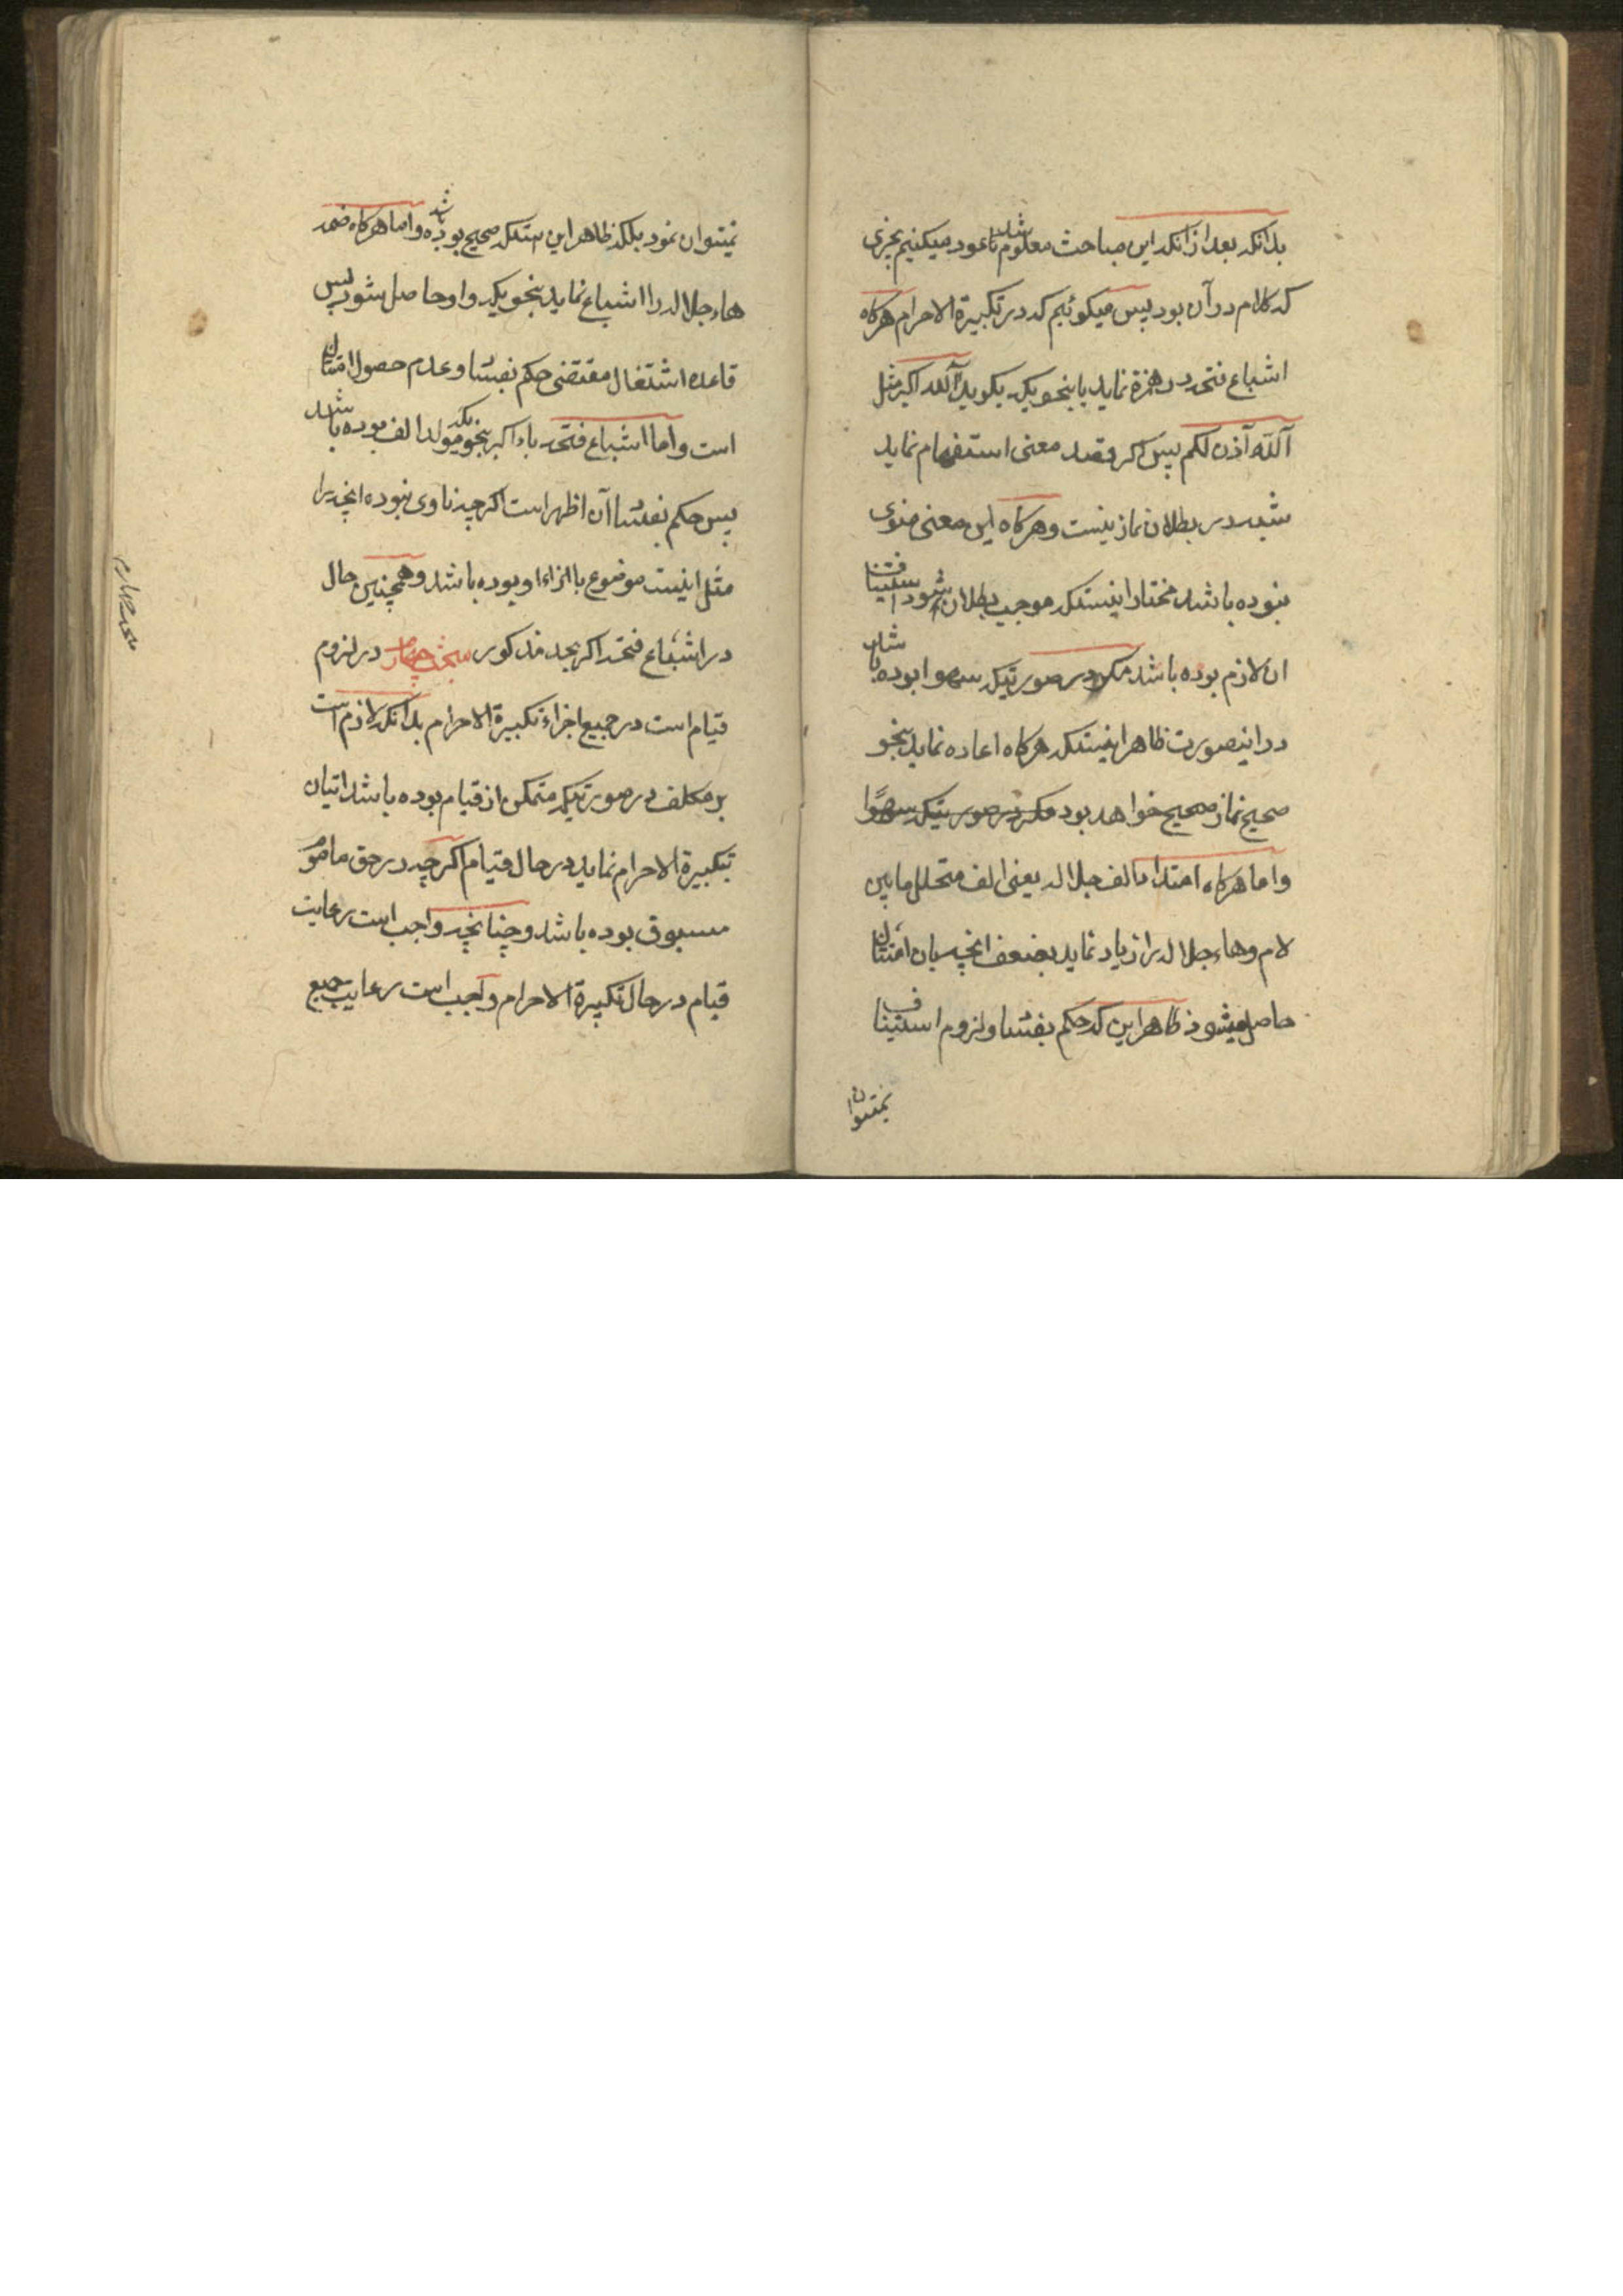 بدانکه بعد از آنکه این مباحث معلوم شد عود میکنیم بچیزی
که کلام در آن بود پس میکوئیم که در تکبیرة الاحرام هرکاه
اشباع فتحه در همزه نماید باینحویکه بکوید آلله اکبر مثل
آللّه آذن لکم پس اکر قصد معنی استفهام نماید
شبهه در بطلان نماز نیست و هرکاه این معنی منوی
نبوده باشد مختار اینستکه موجب بطلان شود استینا
ان لازم بوده باشد مکر در صورتیکه سهوا بوده باشد
در اینصورت ظاهر اینستکه هرکاه اعاده نماید بنحو
صحیح نماز صحیح خواهد بود مکر در صورتیکه سهوًا
و اما هرکاه امتداد الف جلاله یعنی الف متخلل مابین
لام و هاء جلاله را زیاد نماید بضعف انچه بان امتثال
حاصل میشود ظاهر این که حکم بفساد و لزوم استیناف
نمیتوان
نمیتوان نمود بلکه ظاهر این استکه صحیح بوده باشد و اما هرکاه ضمه
هاء جلاله را اشباع نماید بنحویکه واو حاصل شود پس
قاعده اشتغال مقتضی حکم بفساد و عدم حصول امتثال
است و اما اشباع فتحه باء اکبر بنحویکه مولد الف بوده باشد
پس حکم بفساد آن اظهر است اکرچه ناوی نبوده انچه را
مثل اینست موضوع باازاء او بوده باشد و همچنین حال
در اشباع فتحه اکر بحد مذکور مبحث چهارم در لزوم
قیام است در جمیع اجزاء تکبیرة الاحرام بدانکه لازم است
بر مکلف در صورتیکه متمکن از قیام بوده باشد اتیان
بتکبیرة الاحرام نماید در حال قیام اکرچه در حق ماموم
مسبوق بوده باشد و چنانچه واجب است رعایت
قیام در حال تکبیرة الاحرام واجب است رعایت جمیع
مبحث چهارم